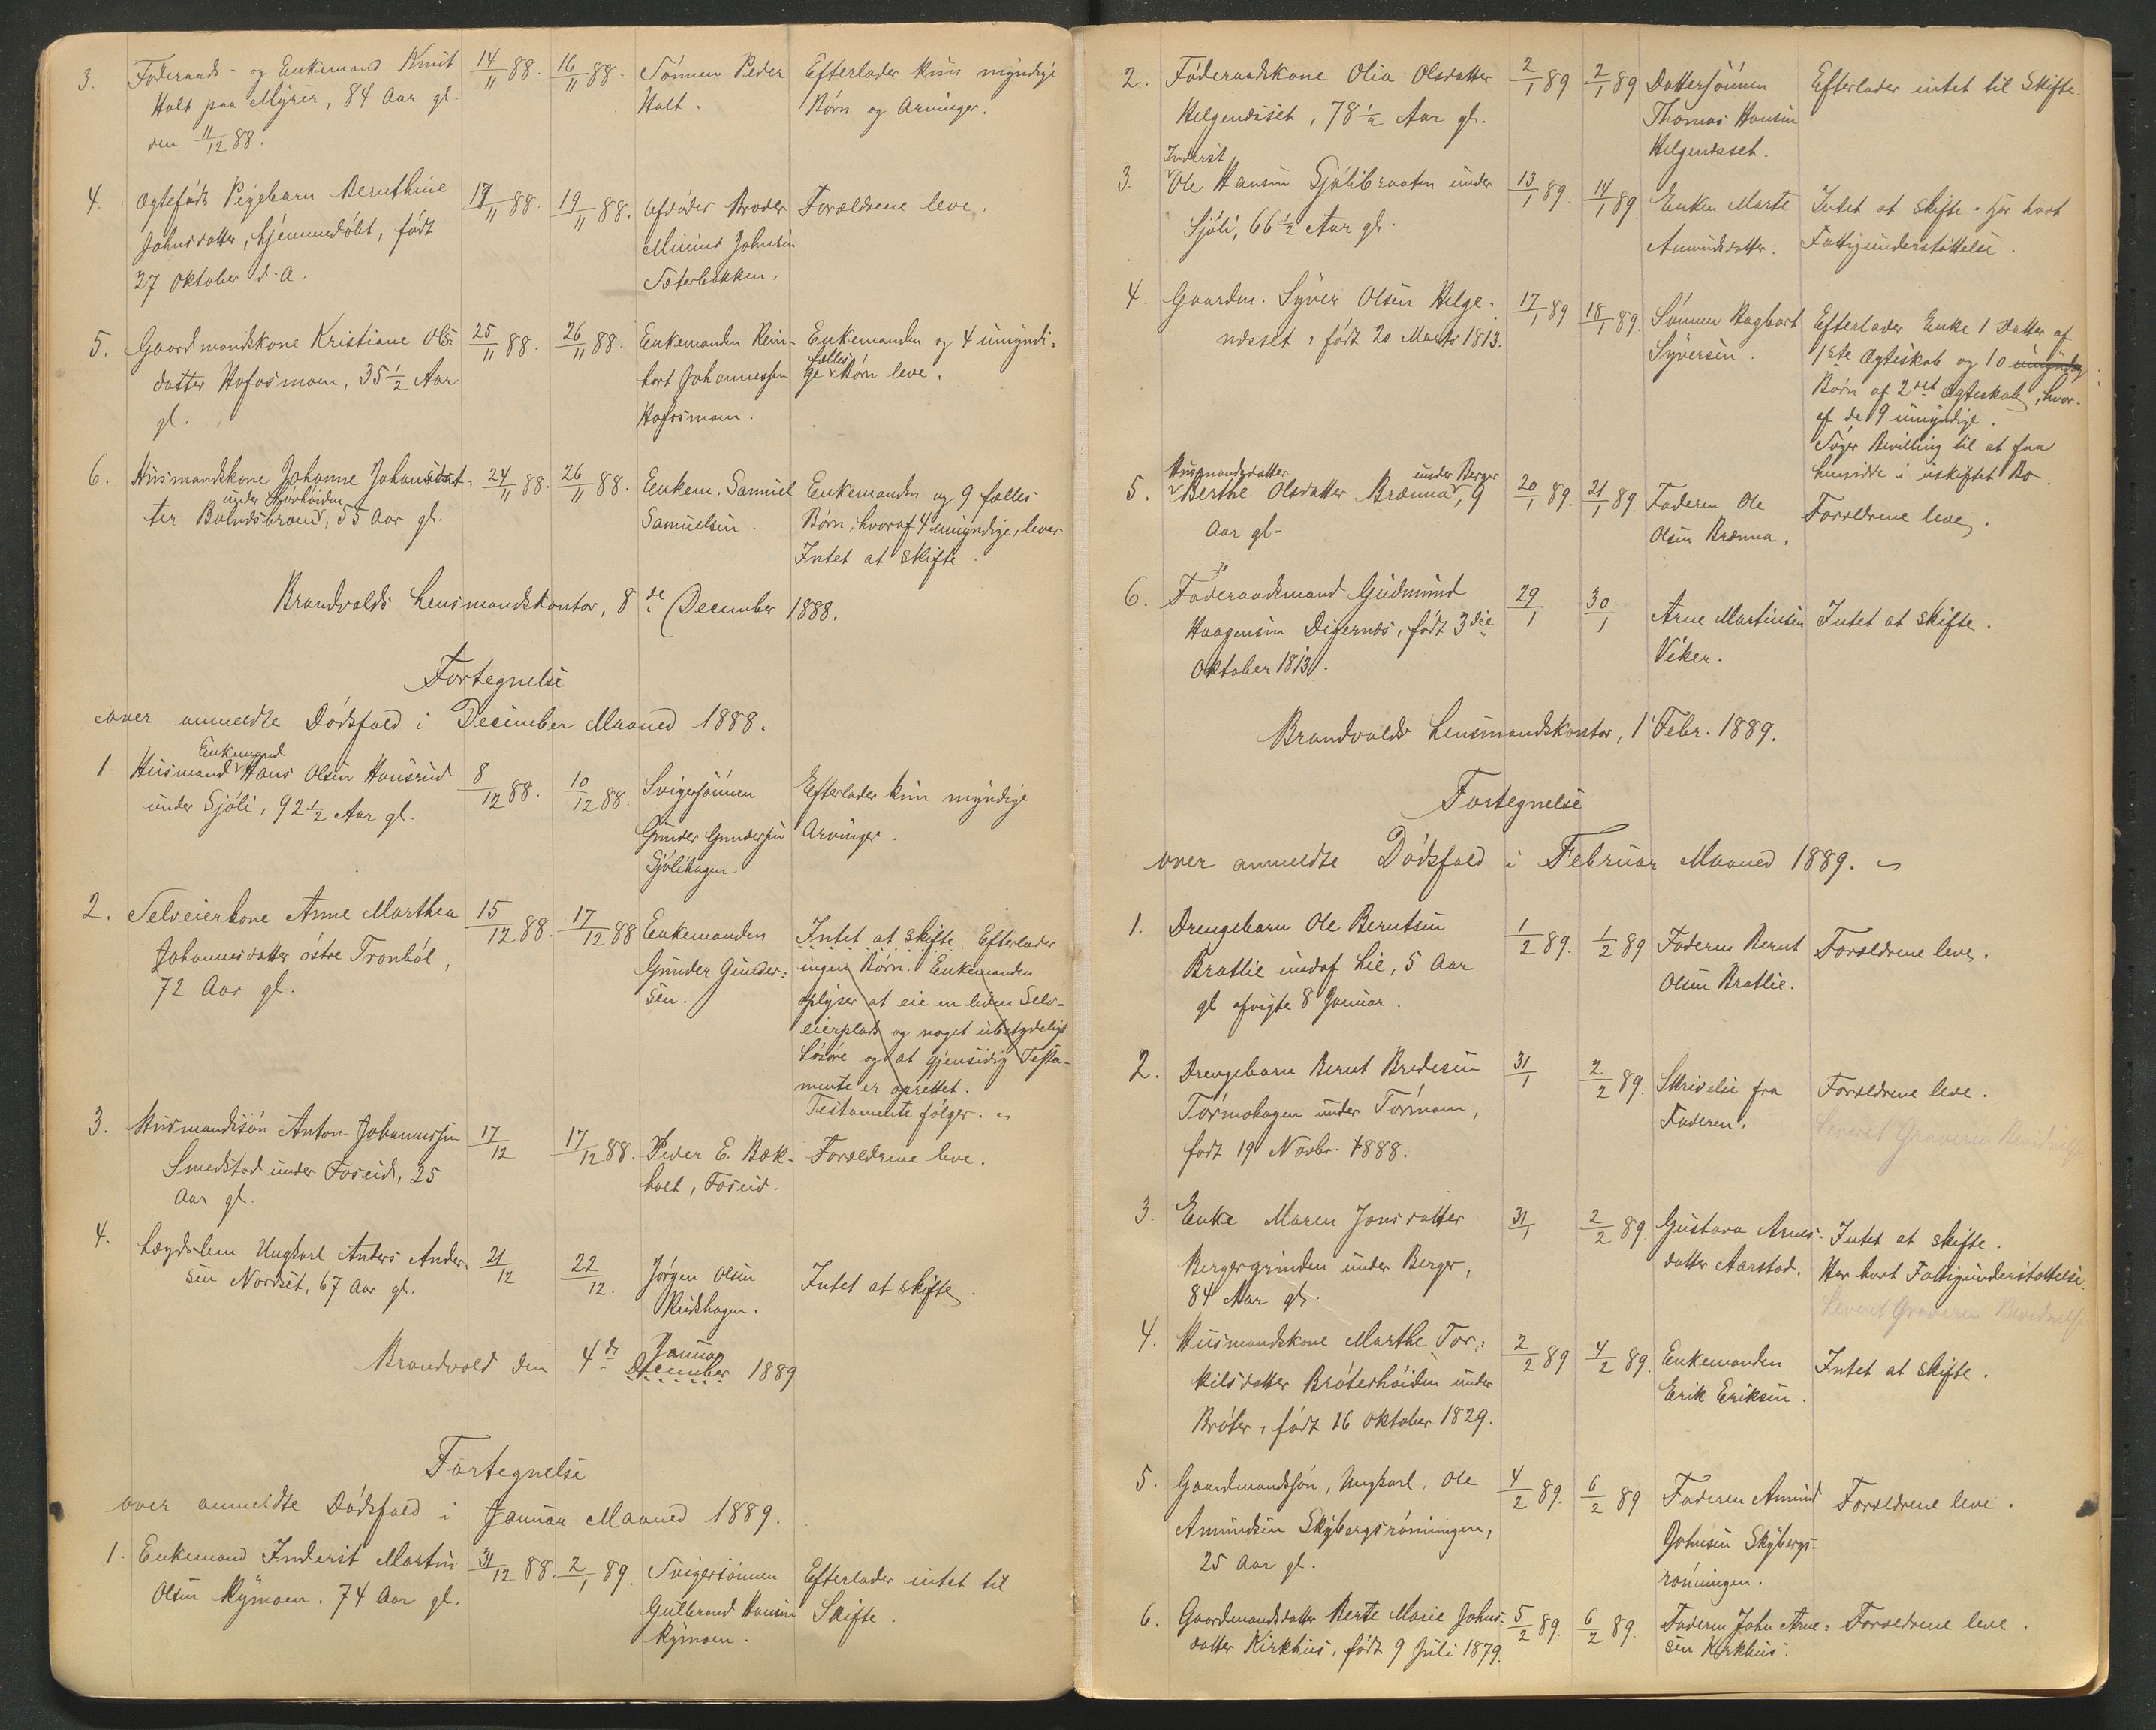 3. Föderaads- og Enkemand Knut 14/11 88. 16/11 88. Sönnen Peder Efterlader kun myndige
Holt paa Myrer, 84 Aar gl. Holt. Börn og Arvinger.
den 11/12 88.
4. Ægtefödt Pigebarn Bernthine 17/11 88. 19/11 88. Afdödes Broder Forældrene leve.
Johnsdatter, hjemmedöbt, födt Minius Johnsen
27 Oktober d. A. Sæterbakken.
5. Gaardmandskone Kristiane Ols- 25/11 88. 26/11 88. Enkemanden Rein- Enkemanden og 4 umyndi-
datter Hofosmoen, 35 1/2 Aar hart Johannessen ge fælles Börn leve.
gl. Hofosmoen.
6. Husmandskone Johanne Johansdat- 24/11 88. 26/11 88. Enkem. Samuel Enkemanden og 9 fælles
under
ter 55 Aar gl. Samuelsen. Börn, hvoraf 4 umyndige, lever
Intet at skifte.
Brandvalds Lensmandskontor, 8de December 1888.
Fortegnelse
over anmeldte Dödsfald i December Maaned 1888.
Enkemand
1 Husmand Hans Olsen Hansrud 8/12 88. 10/12 88. Svigersönnen Efterlader kun myndige
under Sjöli, 92 1/2 Aar gl. Gunder Gundersen Arvinger.
Sjölihagen.
2. Selveierkone Anne Marthea 15/12 88. 17/12 88 Enkemanden Intet at skifte. Efterlader
Johannesdatter östre Tronböl, Gunder Gunder- ingen Börn. Enkemanden
72 Aar gl. sen. oplyser at eie en liden Selv-
eierplads og noget ubetydeligt
Lösöre og at gjensidig Testa-
mente er oprettet.
Testamente fölger.
3. Husmandssön Anton Johannessen 17/12 17/12 88. Peder E. Bæk- Forældrene leve.
Smedstad under Foseid, 25 holt, Foseid.
Aar gl.
4. Lægdslem Ungkarl Anders Ander- 21/12 22/12. Jörgen Olsen Intet at skifte.
sen Nordset, 67 Aar gl. Rudshagen.
Januar
Brandvold den 4de December 1889
Fortegnelse
over anmeldte Dödsfald i Januar Maaned 1889.
1. Enkemand Inderst Martin 31/12 88. 2/1 89. Svigersönnen Efterlader intet til
Olsen Rymoen. 74 Aar gl. Gulbrand Hansen Skifte.
Rymoen.
2. Föderaadskone Olia Olsdatter 2/1 89 2/1 89 Dattersönnen Efterlader intet til Skifte.
Helgendsset, 78 1/2 Aar gl. Thomas Hansen
Helgendsset.
Inderst
3. Ole Hansen Sjölibraaten under 13/1 89. 14/1 89 Enken Marte Intet at skifte. Har havt
Sjöli, 66 1/2 Aar gl. Amundsdatter. Fattigunderstöttelse.
4. Gaardm. Syver Olsen Helge- 17/1 89 18/1 89. Sönnen Hagbart Efterlader Enke 1 Datter af
ndsset, födt 20 Marts 1813. Syversen. 1ste Ægteskab og 10 umyndig
Börn af 2det Ægteskab, hvor-
af de 9 umyndige.
Söger Bevilling til at faa
hensidde i uskiftet Bo.
Husmandsdatter under Berger
5. Berthe Olsdatter Brænna, 9 20/1 89. 21/1 89. Faderen Ole Forældrene leve.
Aar gl- Olsen Brænna.
6. Föderaadsmand Gudmund 29/1 30/1 Arne Martinsen Intet at skifte.
Haagensen Digernæs, födt 3die Viker.
Oktober 1813.
Brandvolds Lensmandskontor, 1 Febr. 1889.
Fortegnelse
over anmeldte Dödsfald i Februar Maaned 1889.
1. Drengebarn Ole Berntsen 1/2 89. 1/2 89 Faderen Bernt Forældrene leve.
Bratlie undaf Lie, 5 Aar Olsen Bratlie.
gl afvigte 8 Januar.
2. Drengebarn Bernt Bredesen 31/1 2/2 89. Skrivelse fra Forældrene leve.
Törmohagen under Törmoen, Faderen. Leveret Graveren
födt 19 Novbr. 1888.
3. Enke Maren Jonsdatter 31/1 2/2 89. Gustava Arnes- Intet at skifte.
Bergergrinden under Berger, datter Aarstad. Har havt Fattigunderstöttelse.
84 Aar gl. Leveret Graveren
4. Husmandskone Marthe Tor- 2/2 89 4/2 89. Enkemanden Intet at skifte.
kilsdatter Bröterhöiden under Erik Eriksen.
Bröter, födt 16 Oktober 1829.
5. Gaardmandssön, Ungkarl, Ole 4/2 89. 6/2 89 Faderen Amund Forældrene leve.
Amundsen Skybergsrönningen, Johnsen Skybergs-
25 Aar gl. rönningen.
6. Gaardmandsdatter Berte Marie Johns- 5/2 89. 6/2 89. Faderen John Arne- Forældrene leve.
datter Kirkhus, födt 9 Juli 1879. sen Kirkhus.